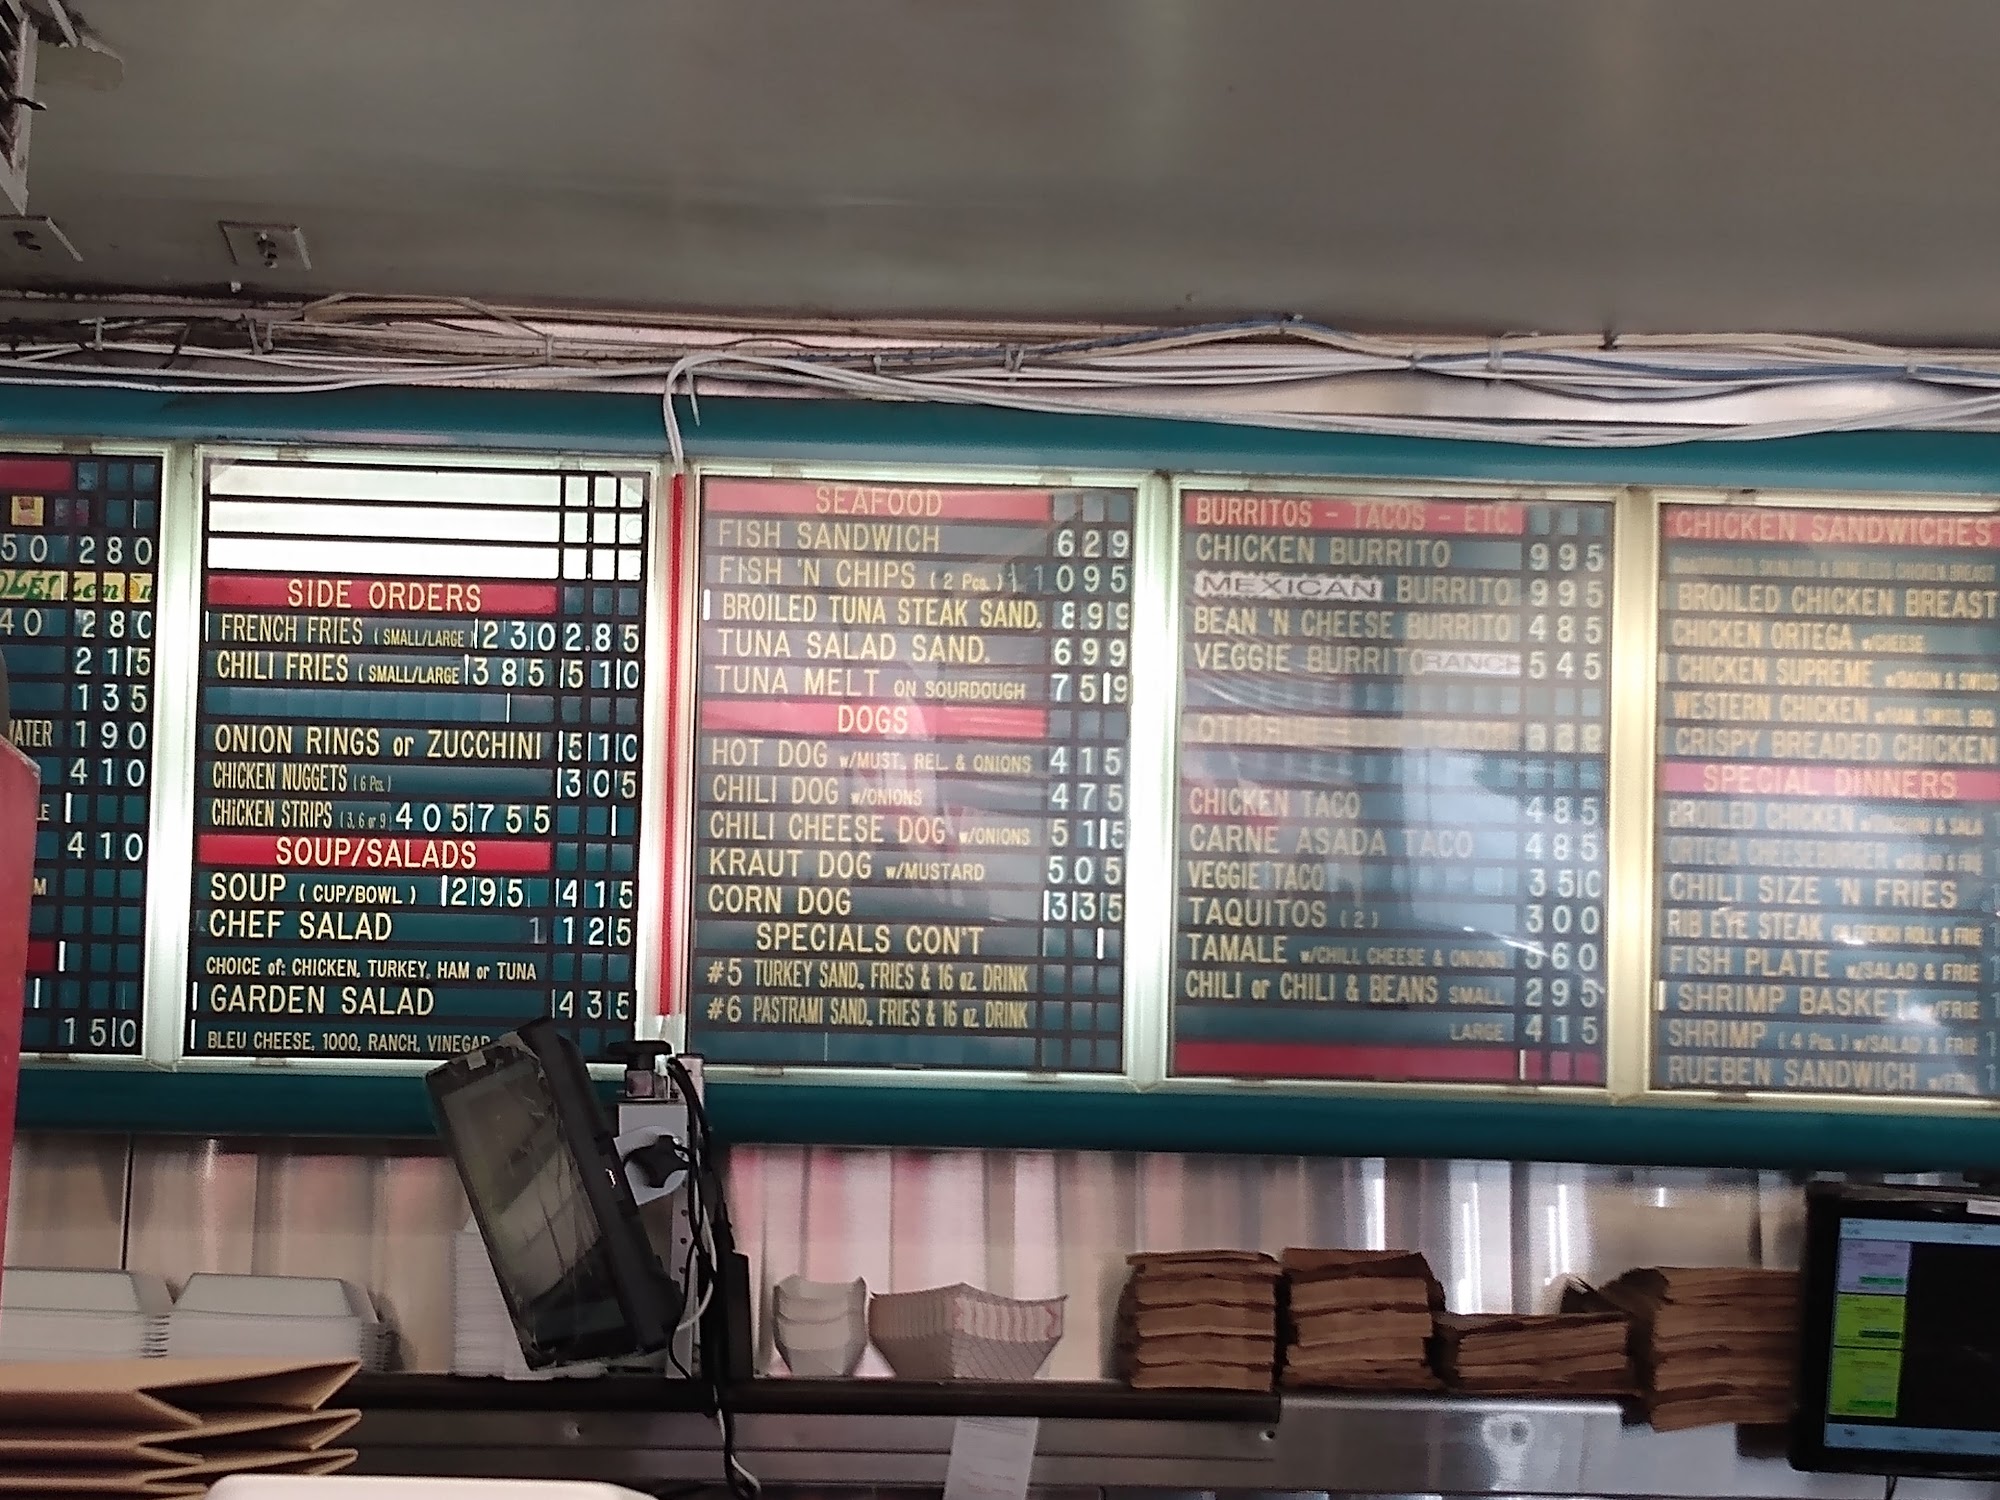 50 280
40 280
215
135
WATER 190
410
410
150
SIDE ORDERS
FRENCH FRIES (SMALL/LARGE) 230 2.85
CHILI FRIES (SMALL/LARGE 385 510
ONION RINGS or ZUCCHINI 510
CHICKEN NUGGETS (6 Pcs.) 305
CHICKEN STRIPS (3, 6 or 9) 405 755
SOUP/SALADS
SOUP (CUP/BOWL) 295 415
CHEF SALAD 1125
CHOICE of: CHICKEN, TURKEY, HAM or TUNA
GARDEN SALAD 435
BLEU CHEESE, 1000, RANCH, VINEGAR
SEAFOOD
FISH SANDWICH 629
FISH 'N CHIPS (2 Pcs.) 1095
BROILED TUNA STEAK SAND. 899
TUNA SALAD SAND. 699
TUNA MELT ON SOURDOUGH 759
DOGS
HOT DOG w/MUST. REL. & ONIONS 415
CHILI DOG w/ONIONS 475
CHILI CHEESE DOG w/ONIONS 515
KRAUT DOG w/MUSTARD 505
CORN DOG 335
SPECIALS CON'T
#5 TURKEY SAND. FRIES & 16 oz. DRINK
#6 PASTRAMI SAND. FRIES & 16 oz. DRINK
BURRITOS - TACOS - ETC.
CHICKEN BURRITO 995
MEXICAN BURRITO 995
BEAN 'N CHEESE BURRITO 485
VEGGIE BURRITO RANCH 545
CHICKEN TACO 485
CARNE ASADA TACO 485
VEGGIE TACO 350
TAQUITOS (2) 300
TAMALE w/CHILI CHEESE & ONIONS 560
CHILI or CHILI & BEANS SMALL 295
LARGE 415
CHICKEN SANDWICHES
BROILED CHICKEN BREAST
CHICKEN ORTEGA w/CHEESE
CHICKEN SUPREME w/BACON & SWISS
WESTERN CHICKEN w/HAM, SWISS, BBQ
CRISPY BREADED CHICKEN
SPECIAL DINNERS
BROILED CHICKEN
ORTEGA CHEESEBURGER w/SALAD & FRIE
CHILI SIZE 'N FRIES
RIB EYE STEAK ON FRENCH ROLL & FRIE
FISH PLATE w/SALAD & FRIE
SHRIMP BASKET w/FRIE
SHRIMP (4 Pcs.) w/SALAD & FRIE
RUEBEN SANDWICH